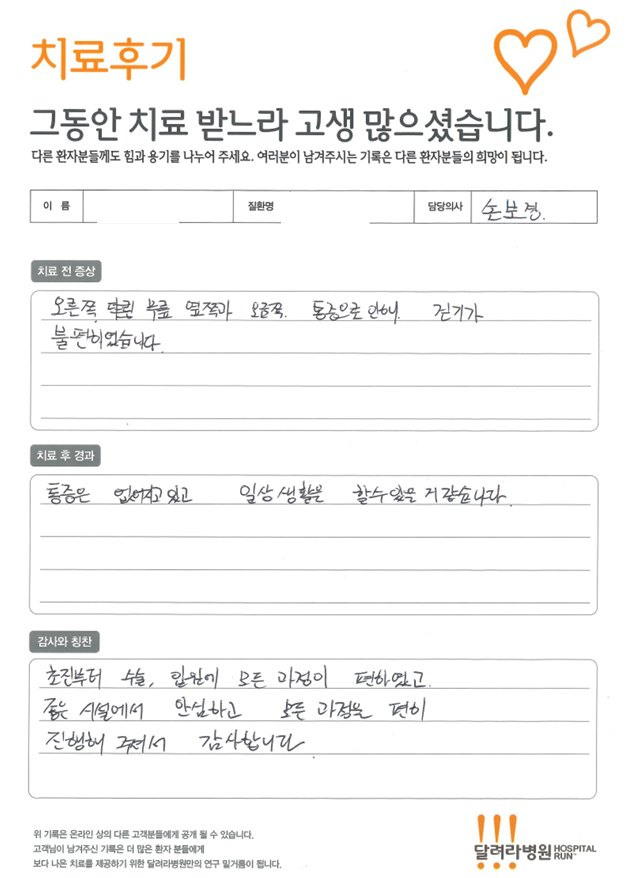 치료후기
그동안 치료 받느라 고생 많으셨습니다.
다른 환자분들께도 힘과 용기를 나누어 주세요. 여러분이 남겨주시는 기록은 다른 환자분들의 희망이 됩니다.
이 름 질환명 담당의사 손보경.
치료 전 증상
오른쪽 무릎 옆쪽과 오금쪽. 통증으로 인해. 걷기가
불편하였습니다.
치료 후 경과
통증은 없어지고 있고 일상생활은 할수있을거 같습니다.
감사와 칭찬
초진부터 수술, 입원에 모든 과정이 편하였고.
좋은 시설에서 안심하고 모든 과정을 편히
진행해 주셔서 감사합니다.
위 기록은 온라인 상의 다른 고객분들에게 공개 될 수 있습니다.
고객님이 남겨주신 기록은 더 많은 환자 분들에게
보다 나은 치료를 제공하기 위한 달려라병원만의 연구 밑거름이 됩니다.
!!!
달려라병원 HOSPITAL RUN